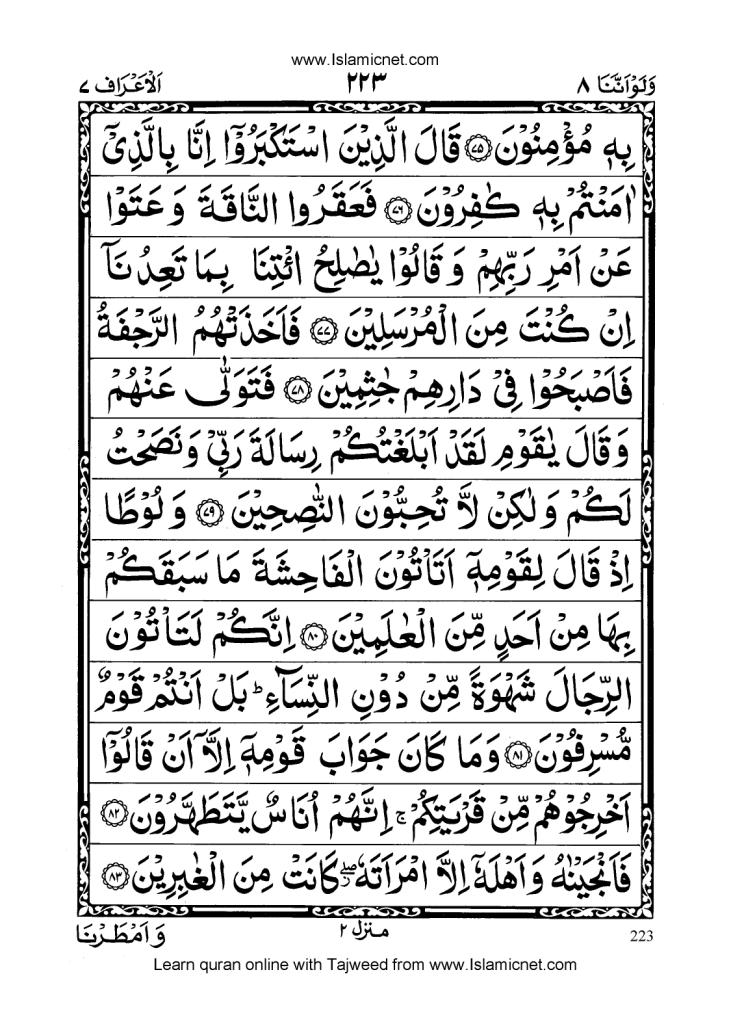 www.Islamicnet.com
وَلَوْاَنَّنَا ٨ ٢٢٣ اَلْاَعْرَاف ٧
بِهٖ مُؤْمِنُوْنَ ﴿٧٥﴾ قَالَ الَّذِيْنَ اسْتَكْبَرُوْٓا اِنَّا بِالَّذِىْٓ
اٰمَنْتُمْ بِهٖ كٰفِرُوْنَ ﴿٧٦﴾ فَعَقَرُوا النَّاقَةَ وَ عَتَوْا
عَنْ اَمْرِ رَبِّهِمْ وَ قَالُوْا يٰصٰلِحُ ائْتِنَا بِمَا تَعِدُنَآ
اِنْ كُنْتَ مِنَ الْمُرْسَلِيْنَ ﴿٧٧﴾ فَاَخَذَتْهُمُ الرَّجْفَةُ
فَاَصْبَحُوْا فِىْ دَارِهِمْ جٰثِمِيْنَ ﴿٧٨﴾ فَتَوَلّٰى عَنْهُمْ
وَ قَالَ يٰقَوْمِ لَقَدْ اَبْلَغْتُكُمْ رِسَالَةَ رَبِّىْ وَ نَصَحْتُ
لَكُمْ وَ لٰكِنْ لَّا تُحِبُّوْنَ النّٰصِحِيْنَ ﴿٧٩﴾ وَ لُوْطًا
اِذْ قَالَ لِقَوْمِهٖٓ اَتَاْتُوْنَ الْفَاحِشَةَ مَا سَبَقَكُمْ
بِهَا مِنْ اَحَدٍ مِّنَ الْعٰلَمِيْنَ ﴿٨٠﴾ اِنَّكُمْ لَتَاْتُوْنَ
الرِّجَالَ شَهْوَةً مِّنْ دُوْنِ النِّسَآءِ ؕ بَلْ اَنْتُمْ قَوْمٌ
مُّسْرِفُوْنَ ﴿٨١﴾ وَمَا كَانَ جَوَابَ قَوْمِهٖٓ اِلَّآ اَنْ قَالُوْٓا
اَخْرِجُوْهُمْ مِّنْ قَرْيَتِكُمْ ۚ اِنَّهُمْ اُنَاسٌ يَّتَطَهَّرُوْنَ ﴿٨٢﴾
فَاَنْجَيْنٰهُ وَ اَهْلَهٗٓ اِلَّا امْرَاَتَهٗ ۖ كَانَتْ مِنَ الْغٰبِرِيْنَ ﴿٨٣﴾
223 منزل ٢ وَ اَمْطَرْنَا
Learn quran online with Tajweed from www.Islamicnet.com